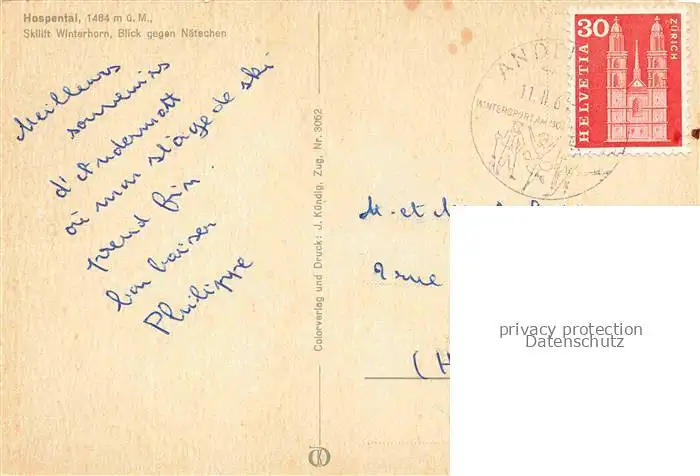 Hospental, 1484 m ü. M.,
Skilift Winterhorn, Blick gegen Nätschen
Meilleurs
souvenirs
d'Andermatt
où mon stage de ski
prend fin.
bon baiser
Philippe
Colorverlag und Druck: J. Kündig, Zug, Nr. 3062
11.II.6
WINTERSPORT AM
30
HELVETIA
ZÜRICH
M. et
rue
privacy protection
Datenschutz